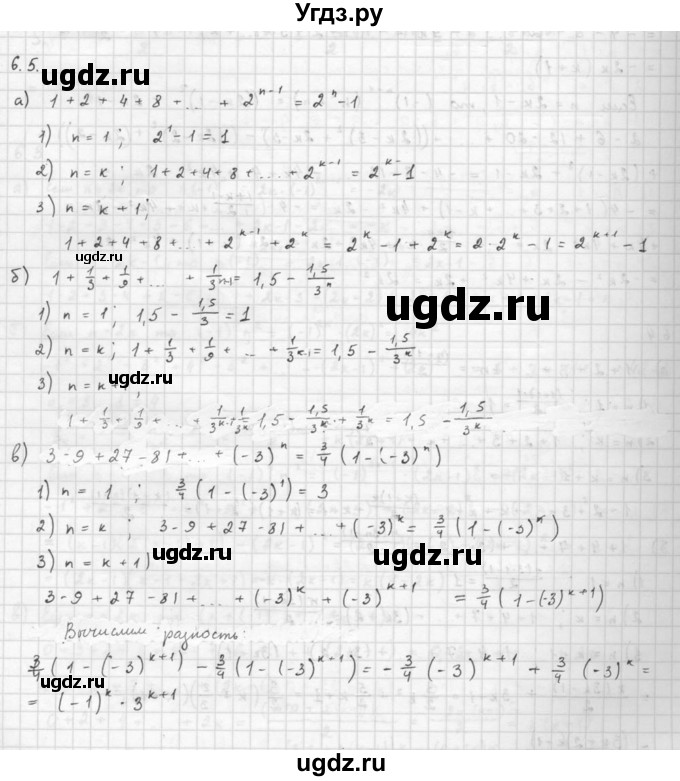 Угдз.ру
6.5.
ugdz.ru
а) 1+2+4+8+...+2^{n-1} = 2^n - 1
1) n=1; 2^1 - 1 = 1
2) n=k; 1+2+4+8+...+2^{k-1} = 2^k - 1
3) n=k+1;
1+2+4+8+...+2^{k-1} + 2^k = 2^k - 1 + 2^k = 2·2^k - 1 = 2^{k+1} - 1
ugdz.ru
б) 1 + 1/3 + 1/9 + ... + 1/3^{n-1} = 1,5 - 1,5/3^n
ugdz.ru
1) n=1; 1,5 - 1,5/3 = 1
2) n=k; 1 + 1/3 + 1/9 + ... + 1/3^{k-1} = 1,5 - 1,5/3^k
ugdz.ru
3) n=k+1
1 + 1/3 + 1/9 + ... + 1/3^{k-1} + 1/3^k = 1,5 - 1,5/3^k + 1/3^k = 1,5 - 1,5/3^k
ugdz.ru
в) 3-9+27-81+...+(-3)^n = 3/4 (1-(-3)^n)
1) n=1; 3/4 (1-(-3)^1) = 3
ugdz.ru
2) n=k; 3-9+27-81+...+(-3)^k = 3/4 (1-(-3)^n)
ugdz.ru
ugdz.ru
3) n=k+1)
3-9+27-81+...+(-3)^k + (-3)^{k+1} = 3/4 (1-(-3)^{k+1})
Вычислим разность:
3/4 (1-(-3)^{k+1}) - 3/4 (1-(-3)^{k+1}) = - 3/4 (-3)^{k+1} + 3/4 (-3)^k =
= (-1)^k · 3^{k+1}
ugdz.ru
ugdz.ru